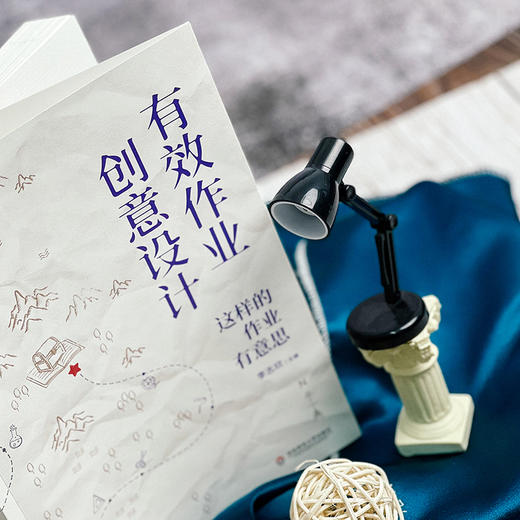 有效作业
创意设计
这样的
作业
有意思
李志欣 主编